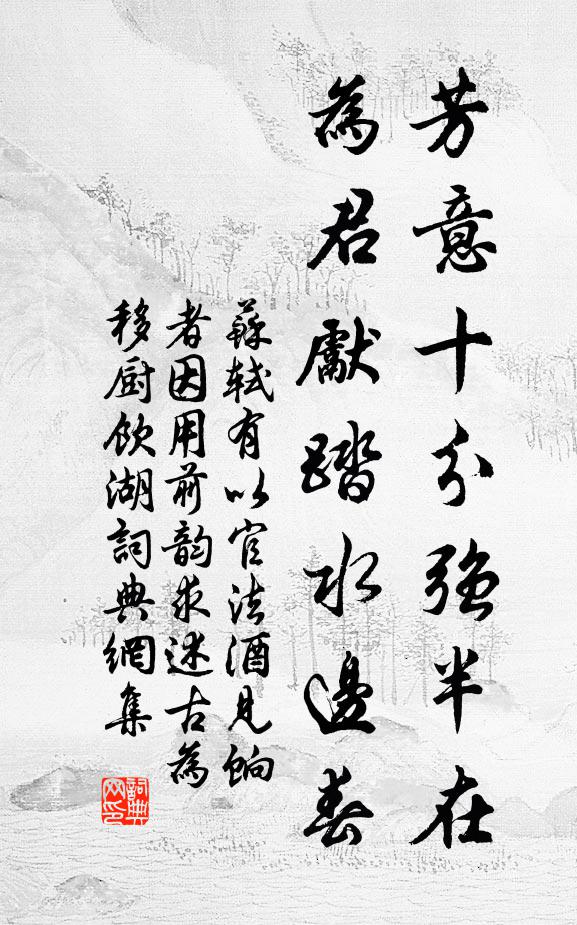 芳意十分強半在
為君獻踏水邊春
蘇軾有以官法酒見餉
者因用前韵求述古為
移厨飲湖詞典網集
詞典
网印